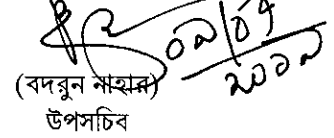 ০৯/০৭
২০০৯
(বদরুন নাহার)
উপসচিব